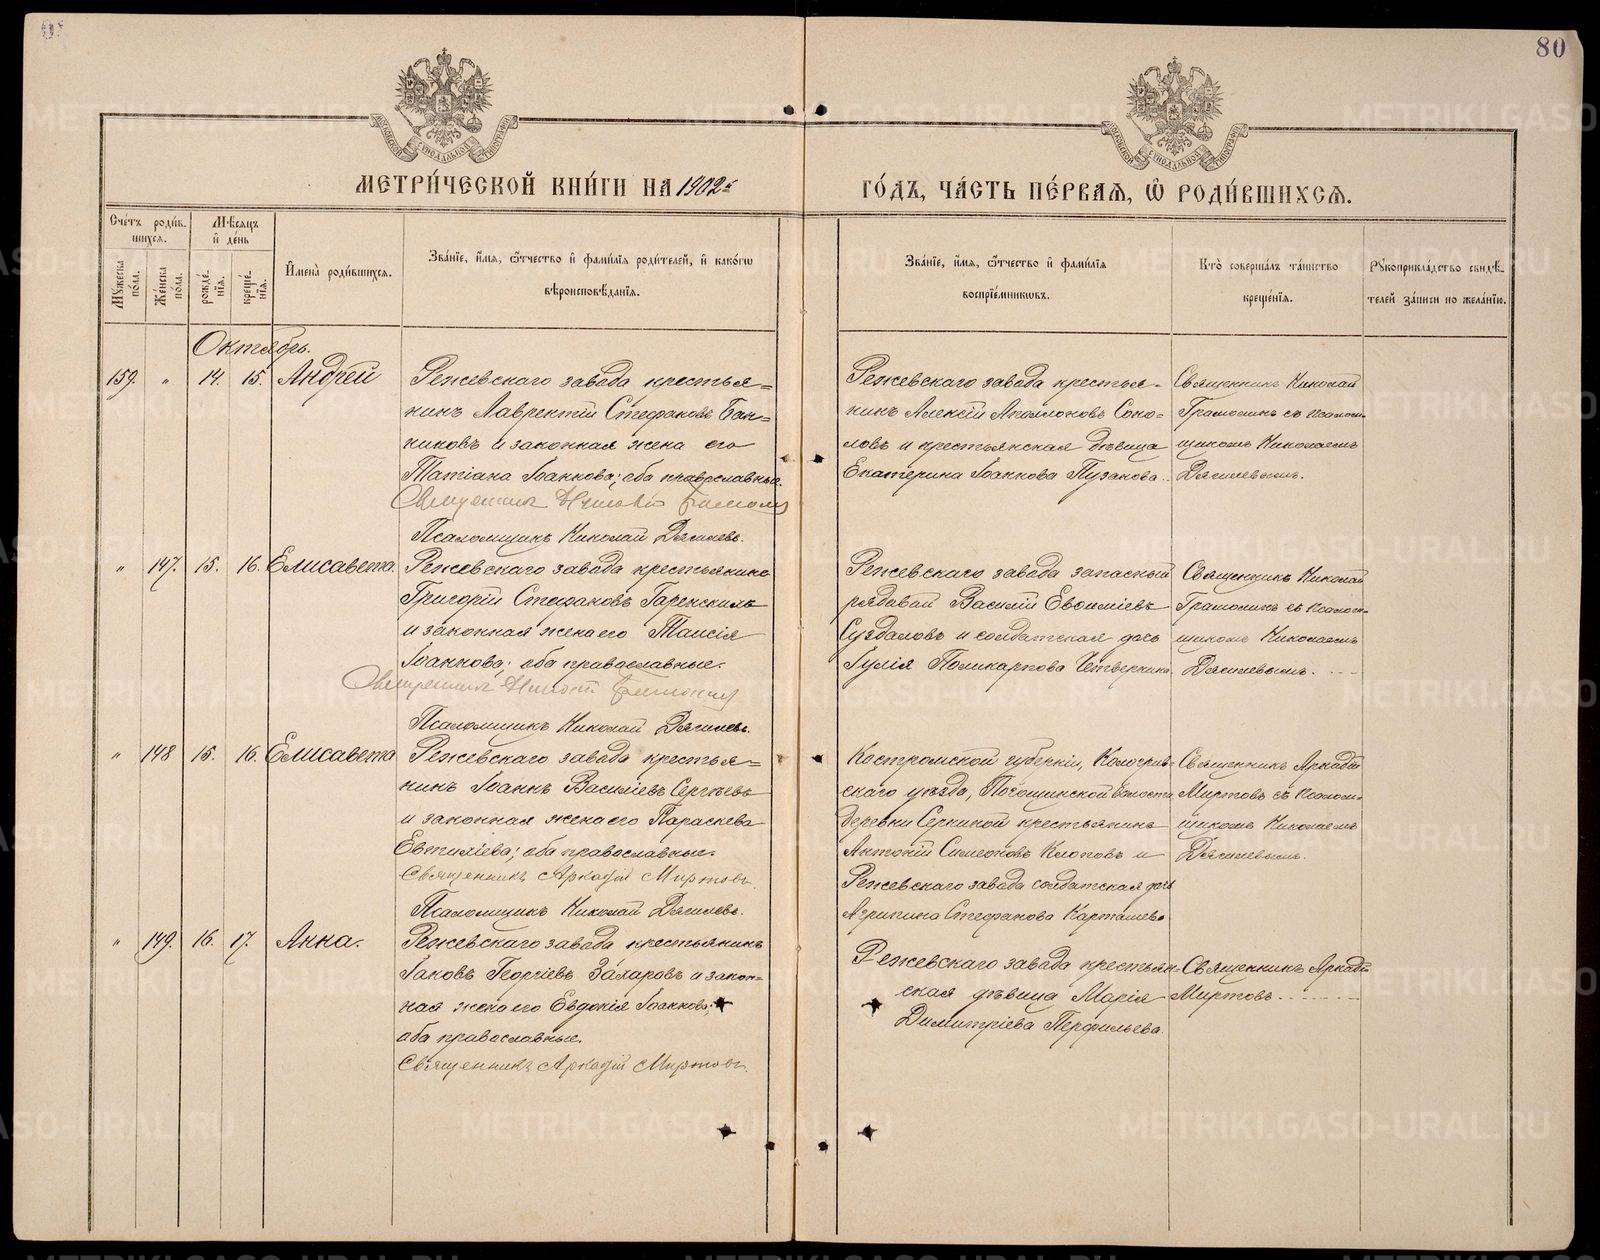 80
МОСКОВСКОЙ СѴНОДАЛЬНОЙ ТИПОГРАФІИ
МОСКОВСКОЙ СѴНОДАЛЬНОЙ ТИПОГРАФІИ
МЕТРИ́ЧЕСКОЙ КНИ́ГИ НА 1902й
ГО́ДЪ, ЧА́СТЬ ПЕ́РВАѦ, Ѡ҆ РОДИ́ВШИХСѦ.
Сче́тъ роди́вшихсѧ.
Мѣ́сѧцъ и҆ де́нь
Му́жеска по́ла.
Же́нска по́ла.
рожде́нїѧ.
креще́нїѧ.
И҆мена̀ роди́вшихсѧ.
Зва́нїе, и҆́мѧ, ѻ҆́тчество и҆ фами́лїѧ роди́телей, и҆ како́гѡ
вѣроисповѣ́данїѧ.
Зва́нїе, и҆́мѧ, ѻ҆́тчество и҆ фами́лїѧ
воспрїе́мникѡвъ.
Кто̀ соверша́лъ та́инство
креще́нїѧ.
Рꙋкоприкла́дство свидѣ́телей за́писи по жела́нїю.
Октябрь.
159. " 14. 15. Андрей
Режевскаго завода крестья=
нинъ Лаврентій Стефановъ Бан=
никовъ и законная жена его
Татіана Іоаннова; оба православные.
Священникъ Николай Грамолинъ
Псаломщикъ Николай Дягилевъ.
Режевскаго завода крестья-
нинъ Алексій Аполлоновъ Соко=
ловъ и крестьянская дѣвица
Екатерина Іоаннова Пузанова.
Священникъ Николай
Грамолинъ съ псалом-
щикомъ Николаемъ
Дягилевымъ.
" 147. 15. 16. Елисавета.
Режевскаго завода крестьянинъ
Григорій Стефановъ Гаренскихъ
и законная жена его Таисія
Іоаннова; оба православные.
Священникъ Николай Грамолинъ
Псаломщикъ Николай Дягилевъ.
Режевскаго завода запасный
рядовой Василій Евѳиміевъ
Суздаловъ и солдатская дочь
Іулія Поликарпова Четверкина.
Священникъ Николай
Грамолинъ съ псалом-
щикомъ Николаемъ
Дягилевымъ.
" 148 15. 16. Елисавета
Режевскаго завода крестья=
нинъ Іоаннъ Василіевъ Сергѣевъ
и законная жена его Параскева
Евтихіева; оба православные.
Священникъ Аркадій Миртовъ.
Псаломщикъ Николай Дягилевъ.
Костромской губерніи, Кологрив-
скаго уѣзда, волости
деревни крестьянинъ
Антоній Симеоновъ Клоповъ и
Режевскаго завода солдатская дочь
Агрипина Стефанова Карташева
Священникъ Аркадій
Миртовъ съ псалом-
щикомъ Николаемъ
Дягилевымъ.
" 149. 16. 17. Анна.
Режевскаго завода крестьянинъ
Іаковъ Георгіевъ Захаровъ и закон-
ная жена его Евдокія Іоаннова;
оба православные.
Священникъ Аркадій Миртовъ.
Режевскаго завода крестьян-
ская дѣвица Марія
Димитріева Перфильева.
Священникъ Аркадій
Миртовъ.
METRIKI.GASO-URAL.RU